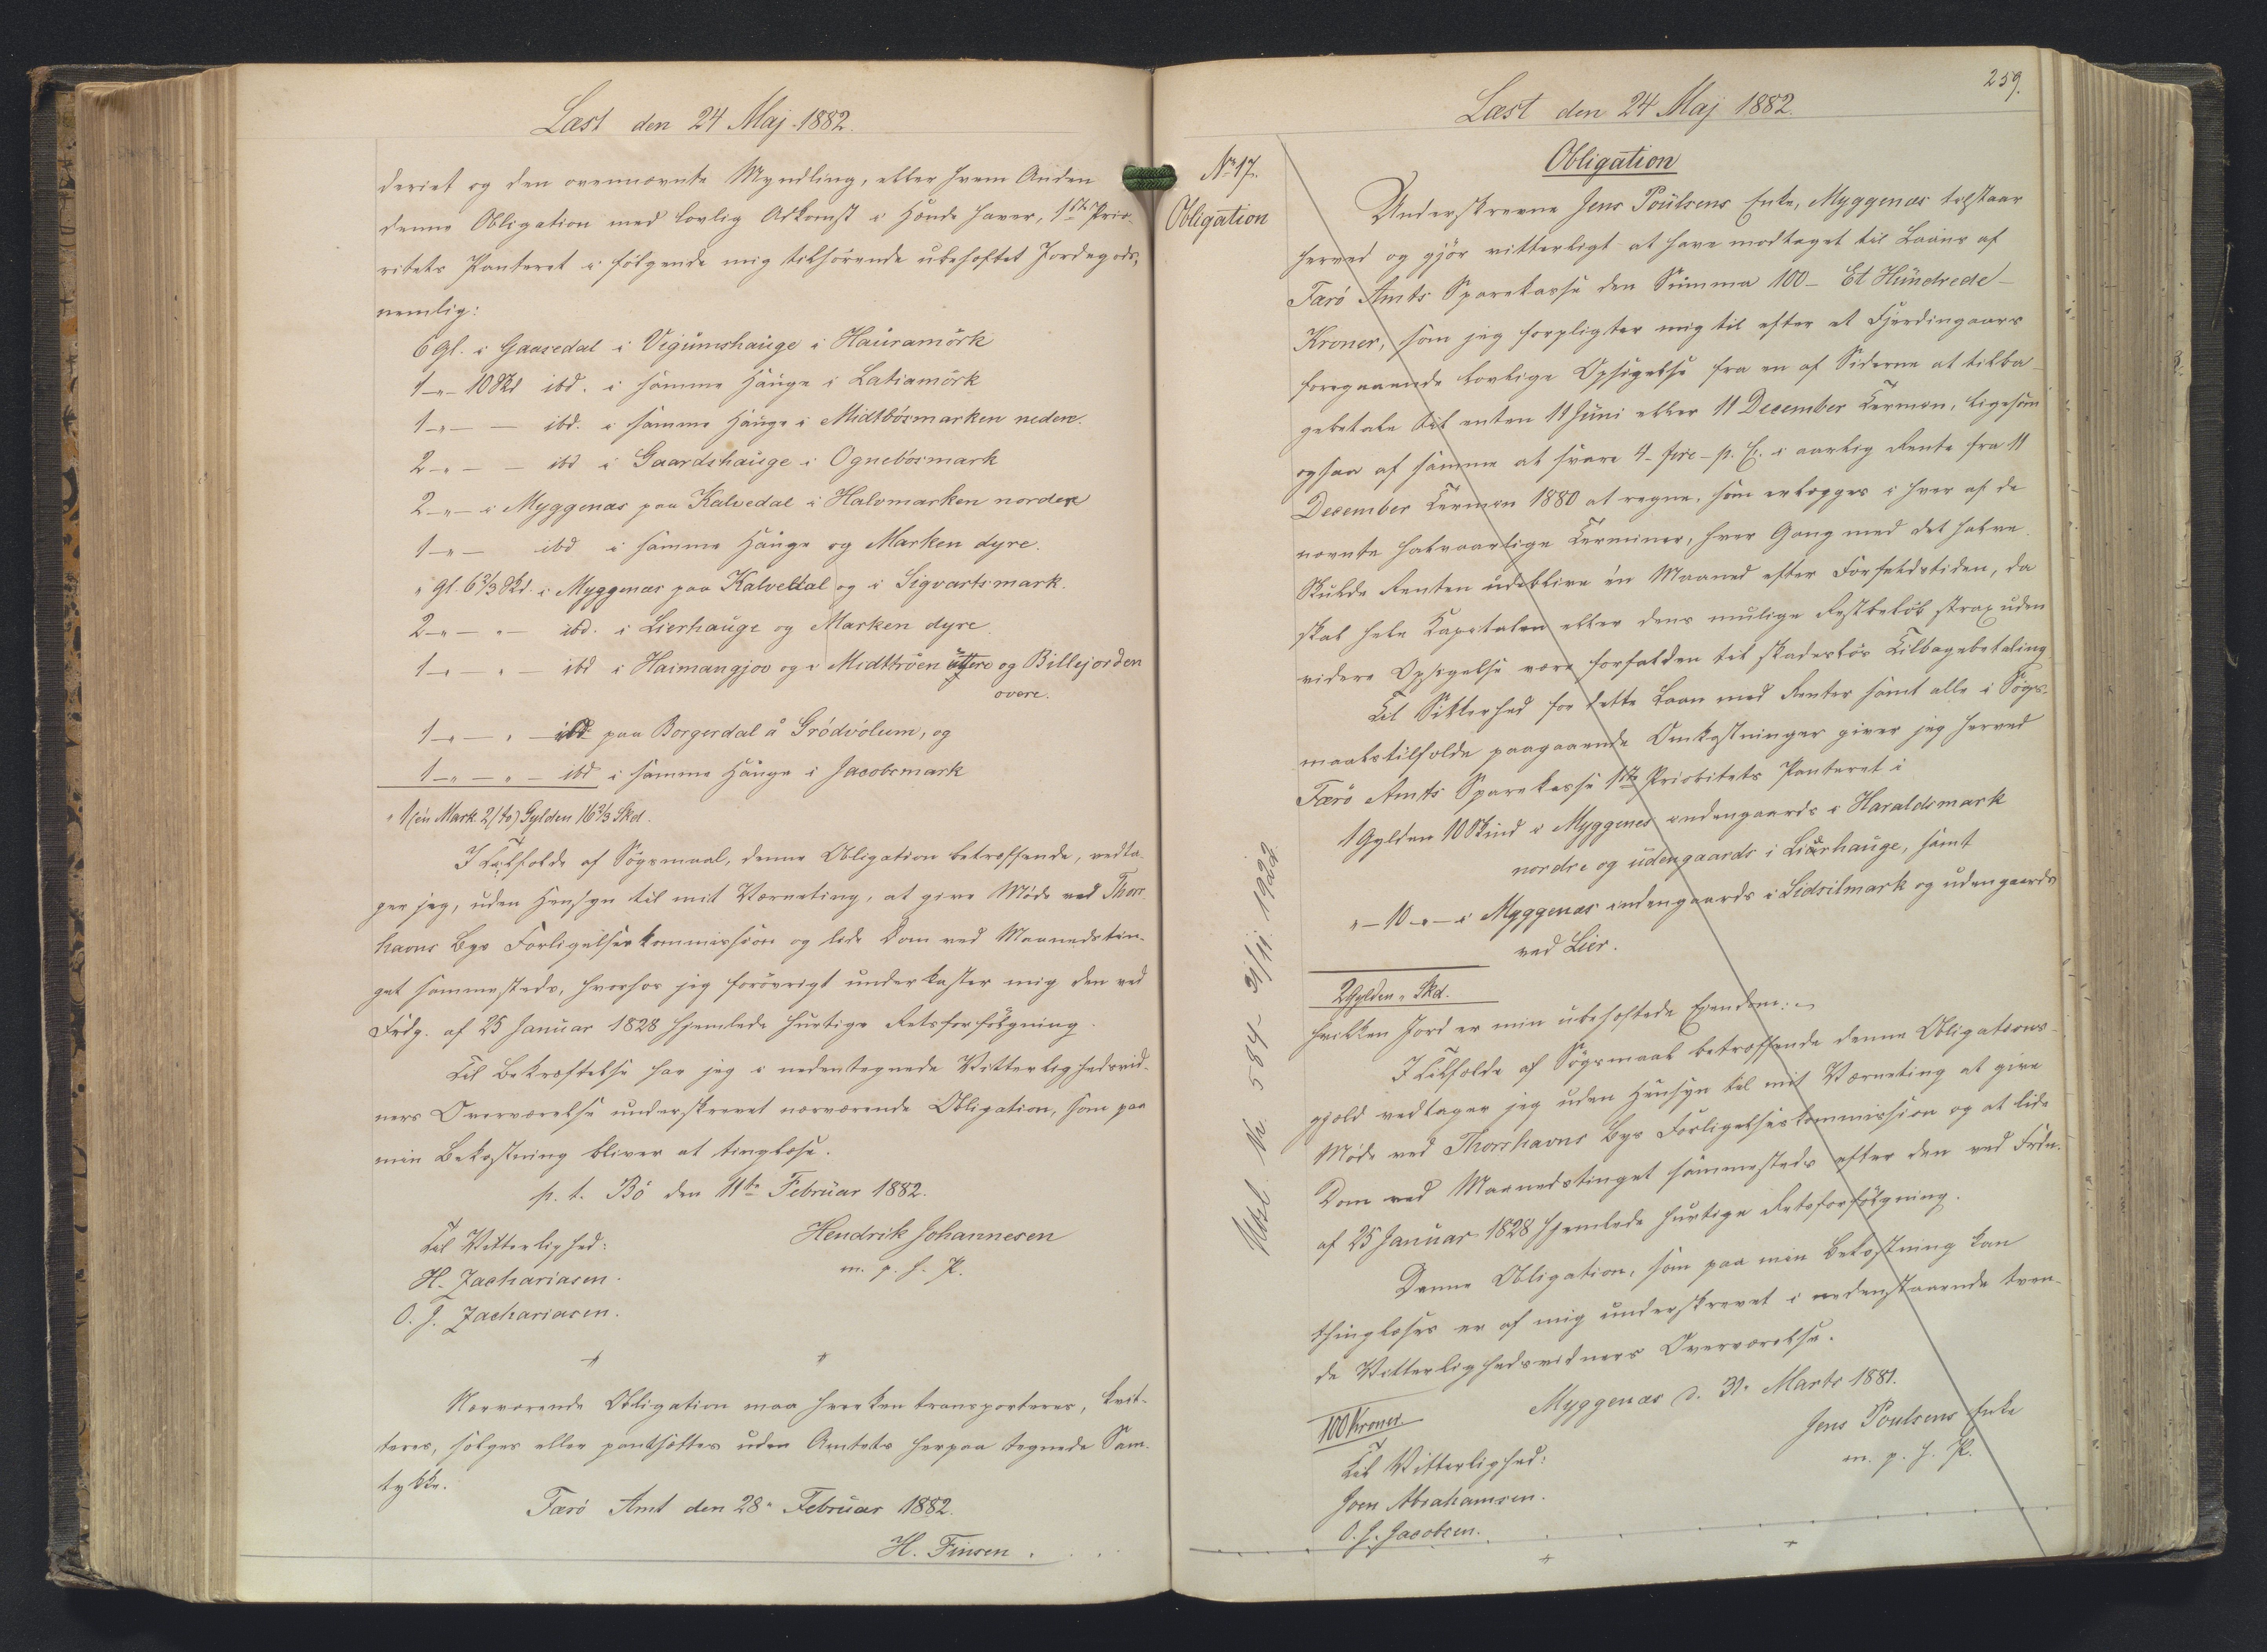 Læst den 24 Maj 1882.
deriet og den ovennævnte Myndling, eller hvem Anden
denne Obligation med lovlig Adkomst i Hænde haver, 1ste Prio-
ritets Panteret i følgende mig tilhørende ubehæftet Jordegods,
nemlig:
6 Gl. i Gaasedal i Vigumshauge i Hauramörk
1 - „ - 10 Skd ibd. i samme Hauge i Latiamörk
1 - „ - - ibd. i samme Hauge i Midtbösmarken nedere.
2 - „ - - ibd i Gaardshauge i Ognebösmark
2 - „ - i Myggenæs paa Kalvedal i Halvmarken nordere
1 - „ - ibd i samme Hauge og Marken dyre.
„ Gl. 6 2/3 Skd. i Myggenæs paa Kalvedal og i Sigvartsmark.
2 - „ - „ - ibd. i Lierhauge og Marken dyre
1 - „ - „ - ibd i Haimangjov og i Midttröen yttere og Billejorden
overe.
1 - „ - „ - ibd paa Borgerdal å Grödvölum, og
1 - „ - „ - ibd i samme Hauge i Jacobsmark
„ 1 (én Mark 2 (to) Gylden 16 2/3 Skd.
I Tilfælde af Søgsmaal, denne Obligation betræffende, vedta-
ger jeg, uden Hensyn til mit Værneting, at give Møde ved Thors-
havns Byes Forligelseskommission og lide Dom ved Maanedstin-
get sammesteds, hvorhos jeg forøvrigt underkaster mig den ved
Frdg. af 25 Januar 1828 hjemlede hurtige Retsforfølgning.
Til Bekræftelse har jeg i nedentegnede Vitterlighedsvid-
ners Overværelse underskrevet nærværende Obligation, som paa
min Bekostning bliver at tinglæse.
p. t. Bö den 11te Februar 1882.
Til Vitterlighed: Hendrik Johannesen
H. Zachariasen. m. p. h. P.
O. J. Zachariasen.
Nærværende Obligation maa hverken transporteres, kvit-
teres, sælges eller pantsættes uden Amtets herpaa tegnede Sam-
tykke.
Færö Amt den 28. Februar 1882.
H. Finsen.
259.
Læst den 24 Maj 1882.
No 17.
Obligation
Obligation
Underskrevne Jens Poulsens Enke, Myggenæs tilstaar
herved og gjör vitterligt at have modtaget til Laans af
Færö Amts Sparekasse den Summa 100 - Et Hundrede -
Kroner, som jeg forpligter mig til efter et Fjerdingaars
foregaaende lovlige Opsigelse fra en af Siderne at tilba-
gebetale til enten 11 Juni eller 11 December Termin, ligesom
ogsaa af samme at svare 4 - fire - p. C. i aarlig Rente fra 11
December Termin 1880 at regne, som erlægges i hver af de
nævnte halvaarlige Terminer, hver Gang med det halve.
Skulde Renten udeblive én Maaned efter Forfaldstiden, da
skal hele Kapitalen eller dens mulige Restbeløb strax uden
videre Opsigelse være forfalden til skadesløs Tilbagebetaling.
Til Sikkerhed for dette Laan med Renter samt alle i Søgs-
maalstilfælde paagaaende Omkostninger giver jeg herved
Færö Amts Sparekasse 1ste Prioritets Panteret i
1 Gylden 10 Skind i Myggenes indengaards i Haraldsmark
nordre og udengaards i Lierhauge, samt
„ - 10 - „ - i Myggenæs indengaards i Sidsilmark og udengaards
ved Lier.
2 Gylden „ Skd.
hvilken Jord er min ubehæftede Ejendom.
I Tilfælde af Søgsmaal betræffende denne Obligations-
gjæld vedtager jeg uden Hensyn til mit Værneting at give
Møde ved Thorshavns Byes Forligelseskommission og at lide
Dom ved Maanedstinget sammesteds efter den ved Frdn.
af 25 Januar 1828 hjemlede hurtige Retsforfølgning.
Denne Obligation, som paa min Bekostning kan
thinglæses er af mig underskrevet i nedenstaaende tven-
de Vitterlighedsvidners Overværelse.
Myggenæs d. 31. Marts 1881.
100 Kroner. Jens Poulsens Enke
Til Vitterlighed: m. p. h. P.
Joen Abrahamsen.
O. J. Jacobsen.
Udsl. No 584 3/11. 1922.